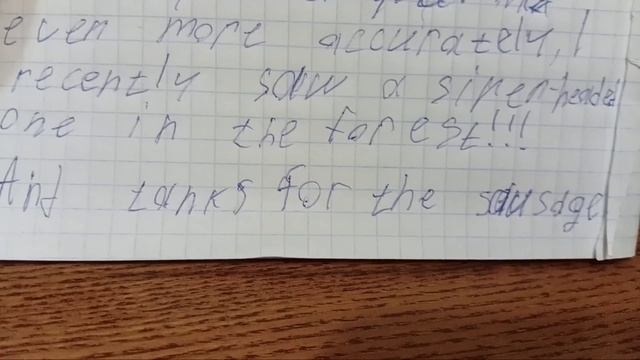 even more accurately, I
recently saw a siren-headed
one in the forest!!!
And tanks for the sausage